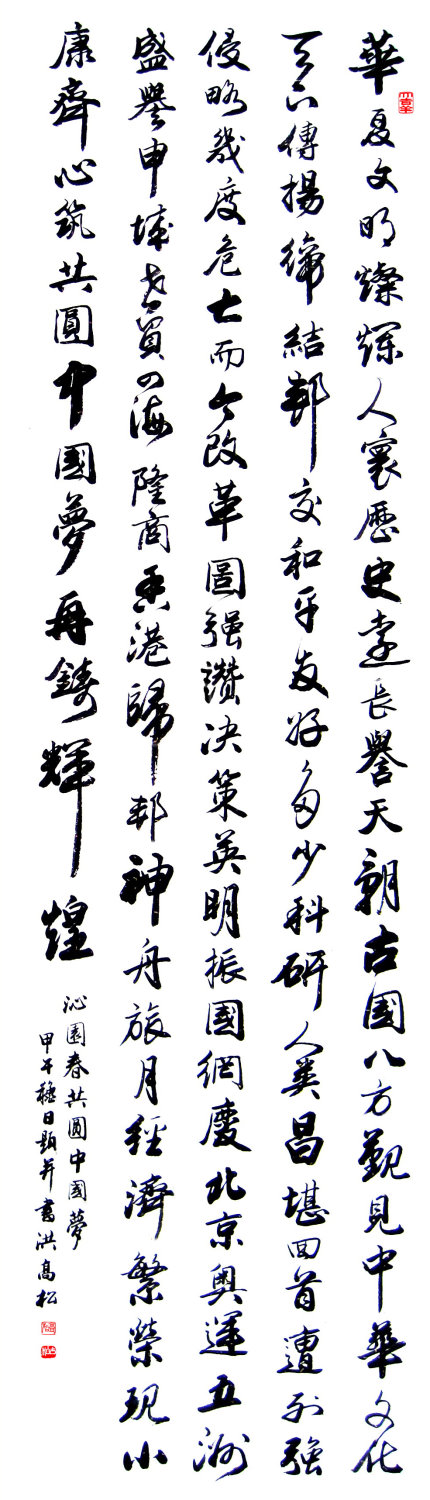 華夏文明燦爛人寰歷史遠長譽天朝古國八方覲見中華文化
天下傳揚締結邦交和平友好多少科研人昌堪回首遭列強
侵略幾度危亡而今改革圖強讚決策英明振國綱慶北京奧運五洲
盛譽申城世貿四海隆商香港歸邦神舟旅月經濟繁榮現小
康齊心筑共圓中國夢再鑄輝煌
沁園春共圓中國夢
甲午穐日題并書洪高松